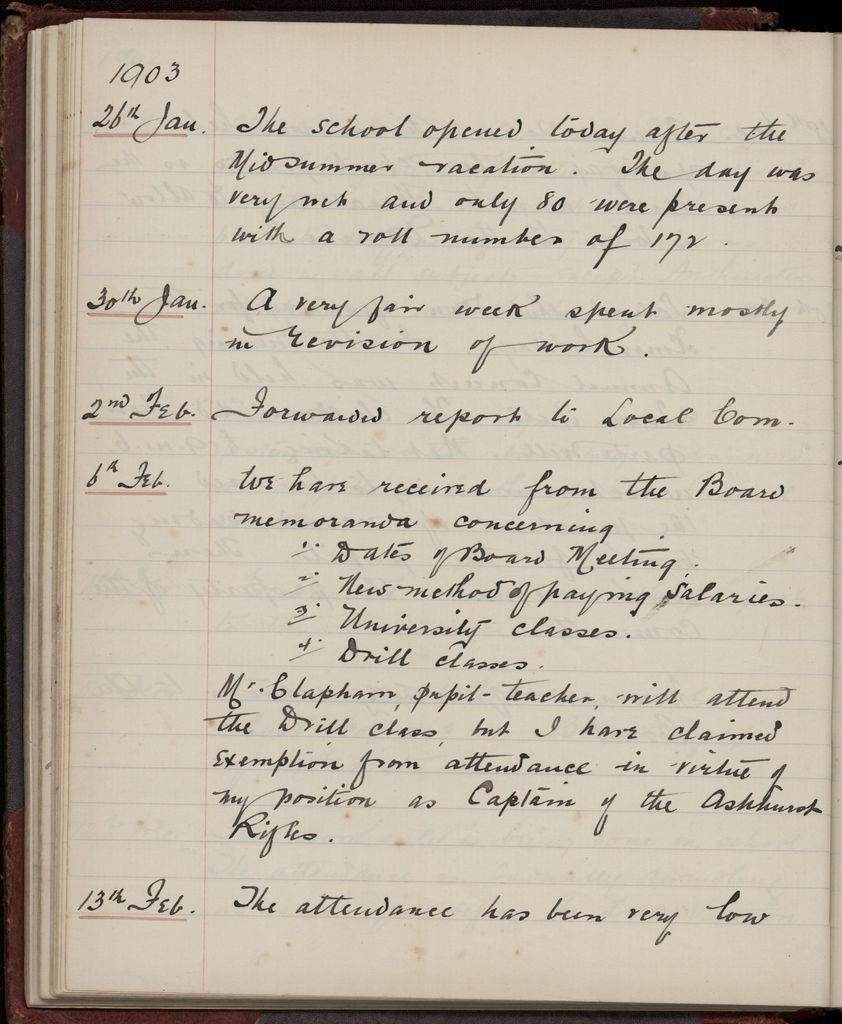 1903
26th Jan. The school opened today after the
Midsummer vacation. The day was
very wet and only 80 were present
with a roll number of 172.
30th Jan. A very fair week spent mostly
in revision of work.
2nd Feb. Forwarded report to Local Com.
6th Feb. We have received from the Board
memoranda concerning
1. Dates of Board Meeting.
2. New method of paying salaries.
3. University classes.
4. Drill classes.
Mr. Clapham, pupil-teacher, will attend
the Drill class, but I have claimed
exemption from attendance in virtue of
my position as Captain of the Ashhurst
Rifles.
13th Feb. The attendance has been very low